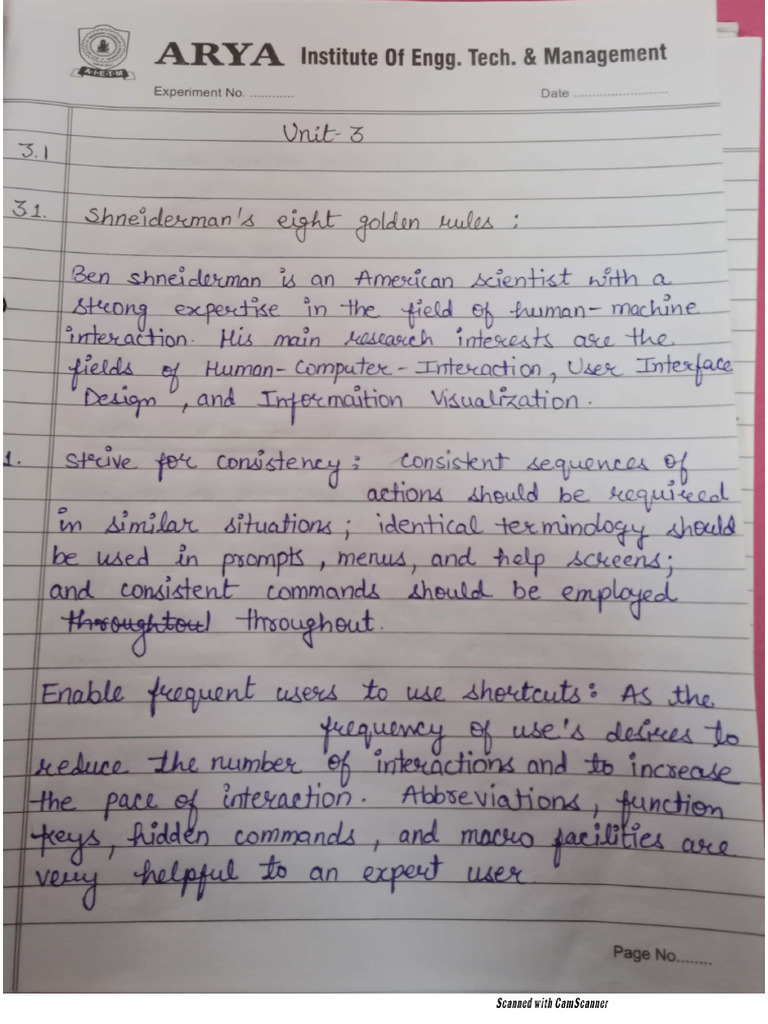 ARYA Institute Of Engg. Tech. & Management
Experiment No. ............ Date ..........................
Unit-3
3.1
31. Shneiderman's eight golden rules :
Ben shneiderman is an American scientist with a
strong expertise in the field of human-machine
interaction. His main research interests are the
fields of Human-Computer-Interaction, User Interface
Design, and Information Visualization.
1. Strive for consistency : consistent sequences of
actions should be required
in similar situations; identical terminology should
be used in prompts, menus, and help screens;
and consistent commands should be employed
throughout.
Enable frequent users to use shortcuts: As the
frequency of use's desires to
reduce the number of interactions and to increase
the pace of interaction. Abbreviations, function
keys, hidden commands, and macro facilities are
very helpful to an expert user
Page No........
Scanned with CamScanner